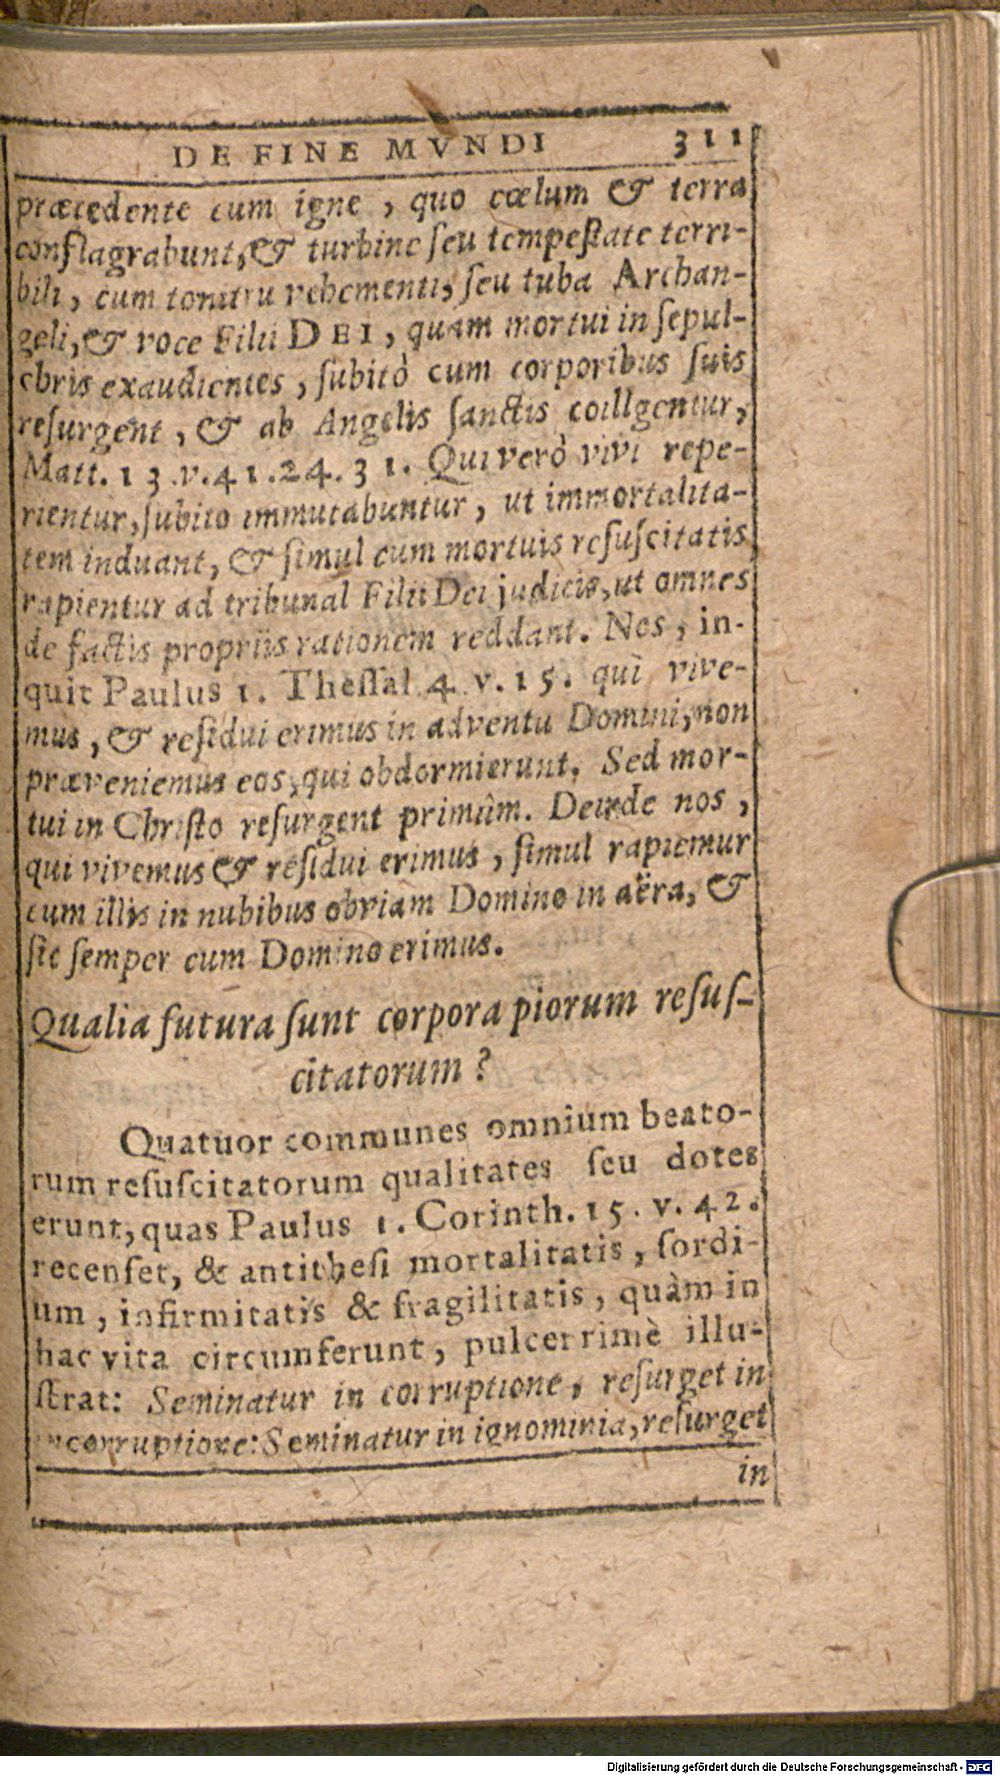 DE FINE MVNDI 311
præcedente cum igne, quo cœlum & terra
conflagrabunt, & turbine ſeu tempeſtate terri-
bili, cum tonitru vehementi, ſeu tuba Archan-
geli, & voce Filii DEI, quam mortui in ſepul-
chris exaudientes, ſubitò cum corporibus ſuis
reſurgent, & ab Angelis ſanctis coillgentur,
Matt. 13.v.41.24.31. Qui verò vivi repe-
rientur, ſubito immutabuntur, ut immortalita-
tem induant, & ſimul cum mortuis reſuſcitatis
rapientur ad tribunal Filii Dei judicis, ut omnes
de factis propriis rationem reddant. Nos, in-
quit Paulus 1. Theſſal 4 v. 15. qui vive-
mus, & reſidui erimus in adventu Domini, non
præveniemus eos, qui obdormierunt. Sed mor-
tui in Chriſto reſurgent primûm. Deinde nos,
qui vivemus & reſidui erimus, ſimul rapiemur
cum illis in nubibus obviam Domino in aëra, &
ſic ſemper cum Domino erimus.
Qualia futura ſunt corpora piorum reſuſ-
citatorum?
Quatuor communes omnium beato-
rum reſuſcitatorum qualitates ſeu dotes
erunt, quas Paulus 1. Corinth. 15. v. 42.
recenſet, & antitheſi mortalitatis, ſordi-
um, infirmitatis & fragilitatis, quàm in
hac vita circumferunt, pulcerrimè illu-
ſtrat: Seminatur in corruptione, reſurget in
incorruptione: Seminatur in ignominia, reſurget
in
Digitalisierung gefördert durch die Deutsche Forschungsgemeinschaft - DFG